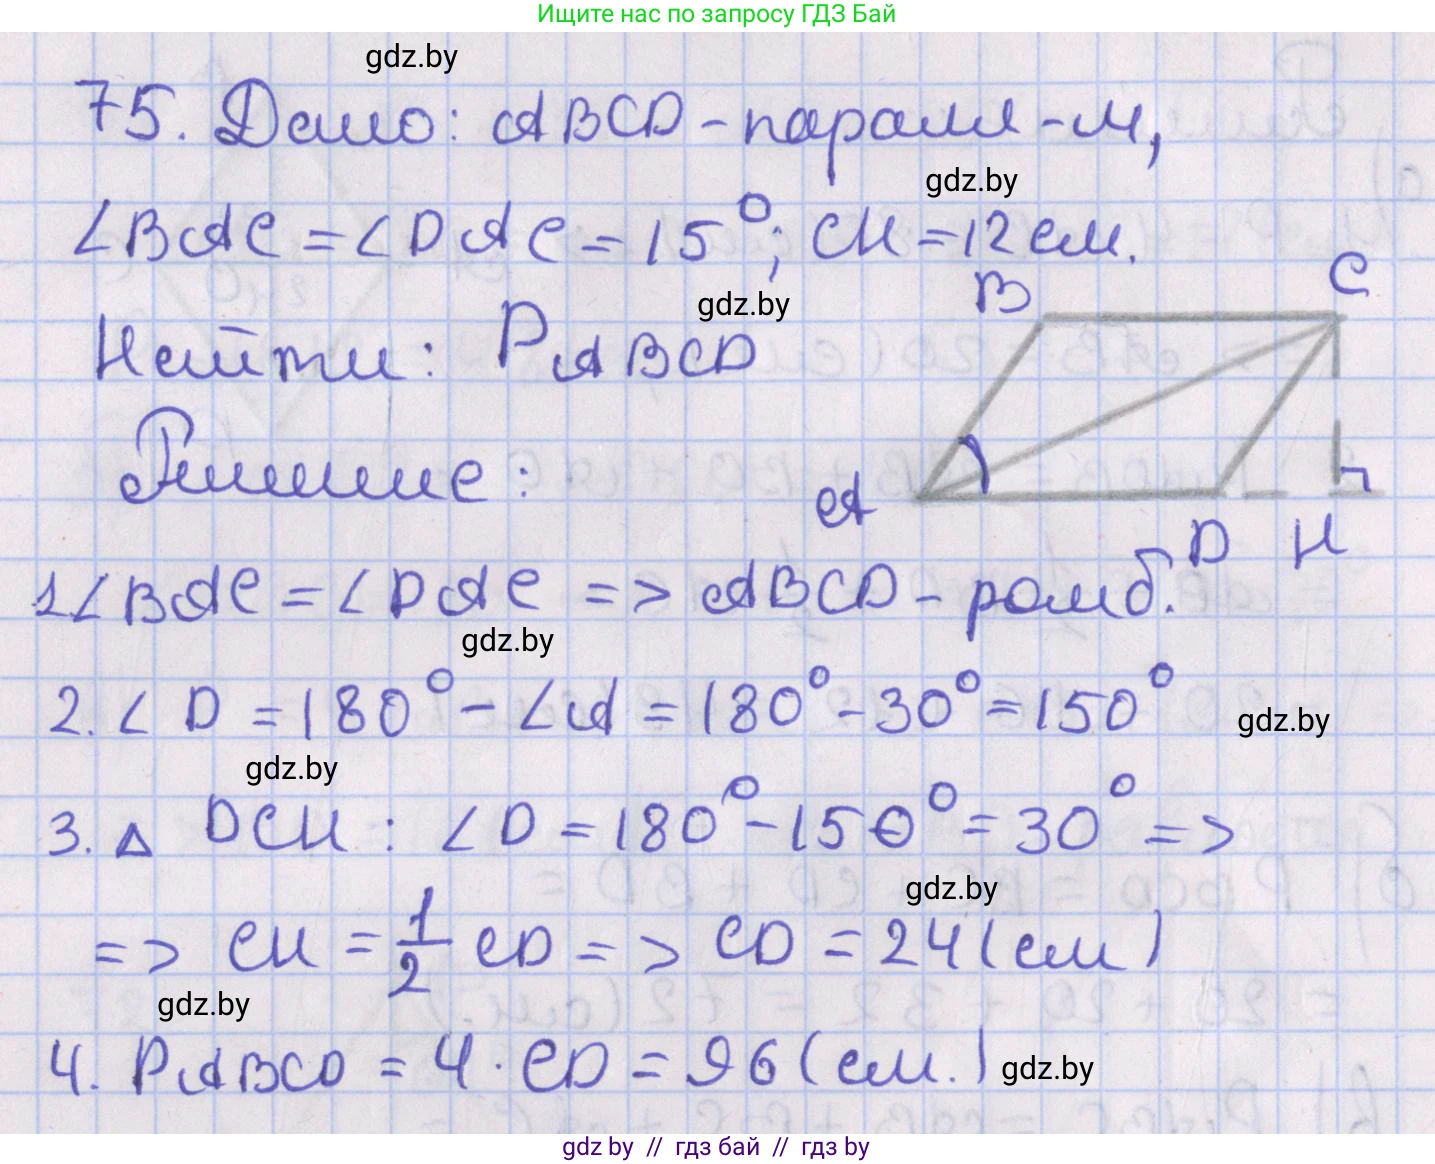 Ищите нас по запросу ГДЗ Бай
gdz.by
75. Дано: ABCD - паралл-м,
gdz.by
∠BAC = ∠DAC = 15°; CH = 12 см.
gdz.by
B C
Найти: P ABCD
Решение:
A D H
1 ∠BAC = ∠DAC => ABCD - ромб.
gdz.by
2. ∠D = 180° - ∠A = 180° - 30° = 150°
gdz.by
gdz.by
3. △ DCH: ∠D = 180° - 150° = 30° =>
gdz.by
=> CH = 1/2 CD => CD = 24 (см)
gdz.by
4. P ABCD = 4 · CD = 96 (см.)
gdz.by
gdz.by // гдз бай // гдз by